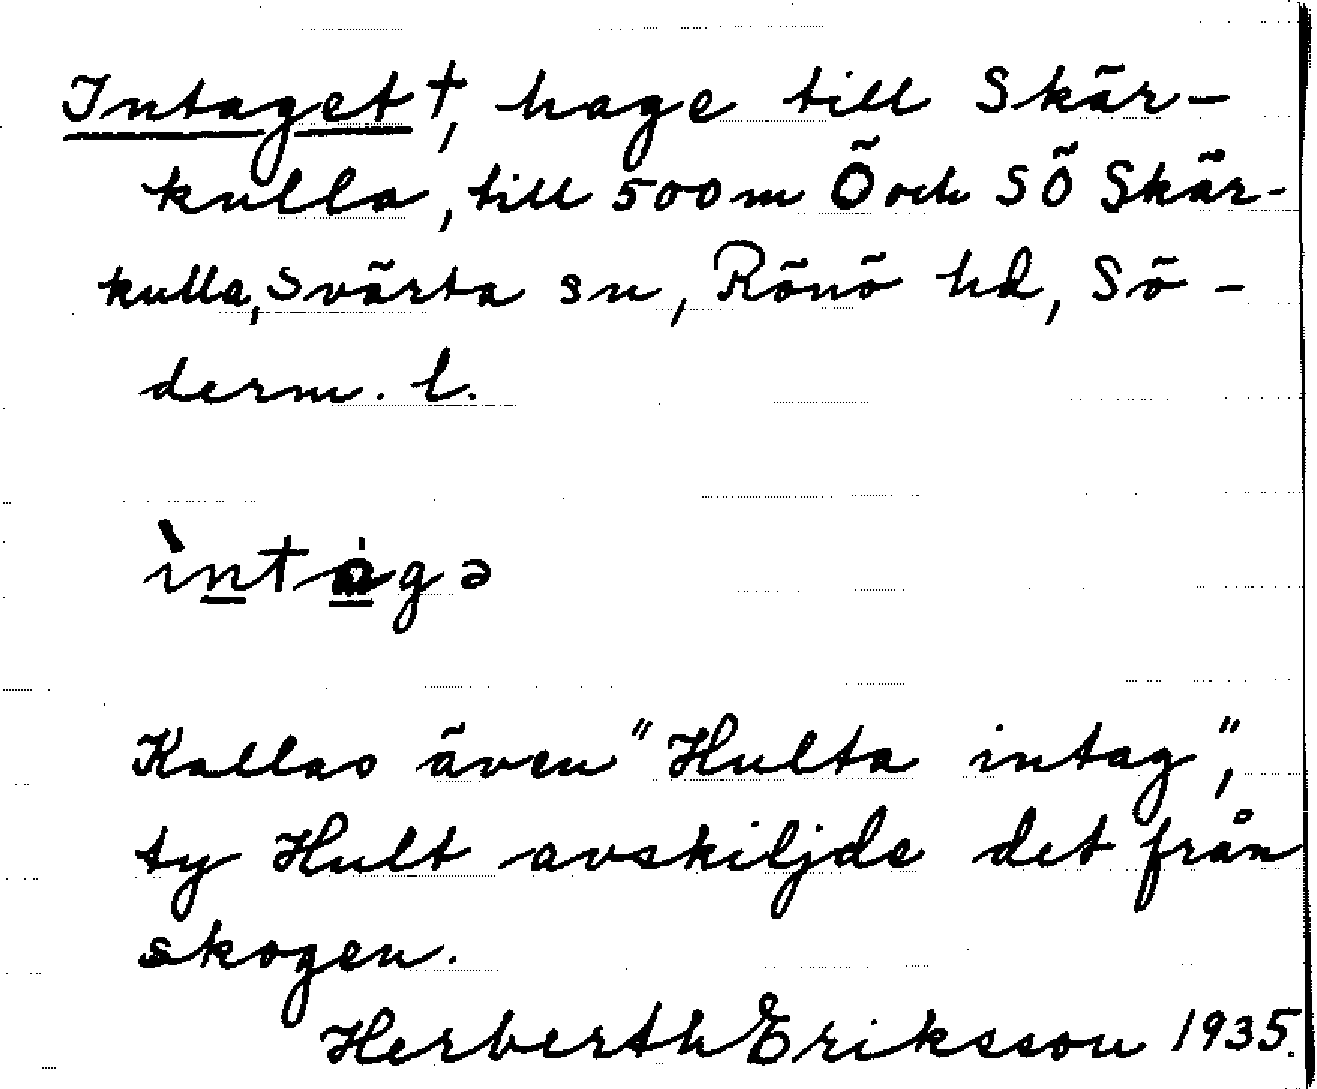 Intaget †, hage till Skär-
kulla, till 500 m Ö och SÖ Skär-
kulla, Svärta sn, Rönö hd, Sö-
derm. l.
ìntagə
Kallas även "Hulta intag",
ty Hult avskiljde det från
skogen.
Herberth Eriksson 1935.